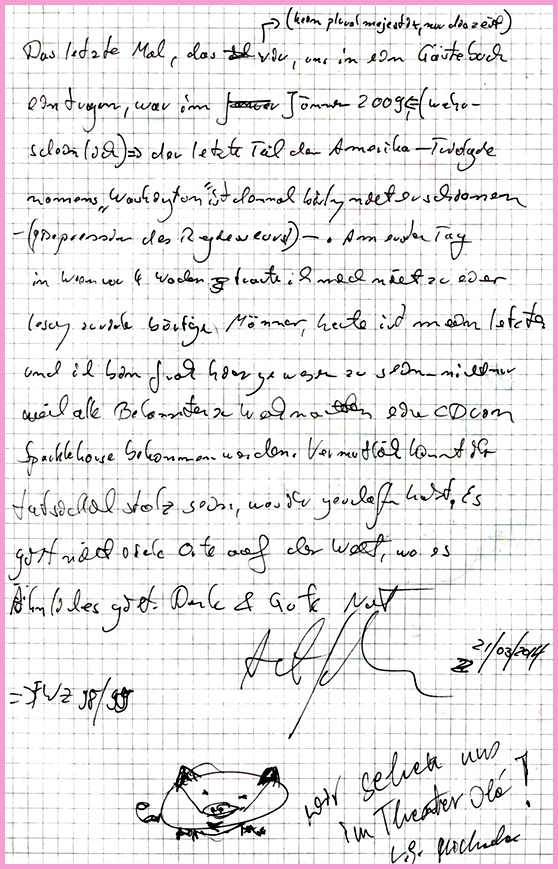 (kein plural majestät, nur dass es zeit)
Das letzte Mal, das wir, uns in ein Gästebuch
eintrugen, war im Jänner 2009 (wahr-
schein(lich) => der letzte Teil der Amerika-Trilogie
namens „Washington" ist damals nicht erschienen
(Depression des Regisseurs) - . Am ersten Tag
in Wien vor 4 Wochen traute ich mich nicht zu einer
Lesung bärtige Männer, heute ist mein letzter
und ich bin froh hier gewesen zu sein - nicht nur
weil alle Bekannten zu Weihnachten eine CD von
Sparklehorse bekommen werden. Vermutlich könnt ihr
tatsächlich stolz sein, was ihr geschafft habt. Es
gibt nicht viele Orte auf der Welt, wo es
Ähnliches gibt. Danke & Gute Nacht
21/03/2014
= FWZ 98/99
wir sehen uns
im Theater Olé!
l.g. Michael